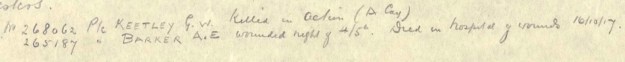 268062 Pte KEETLEY G. W. Killed in action (A Coy)
265187 " BARKER A.E wounded night of 4/5th. Died in hospital of wounds 16/10/17.